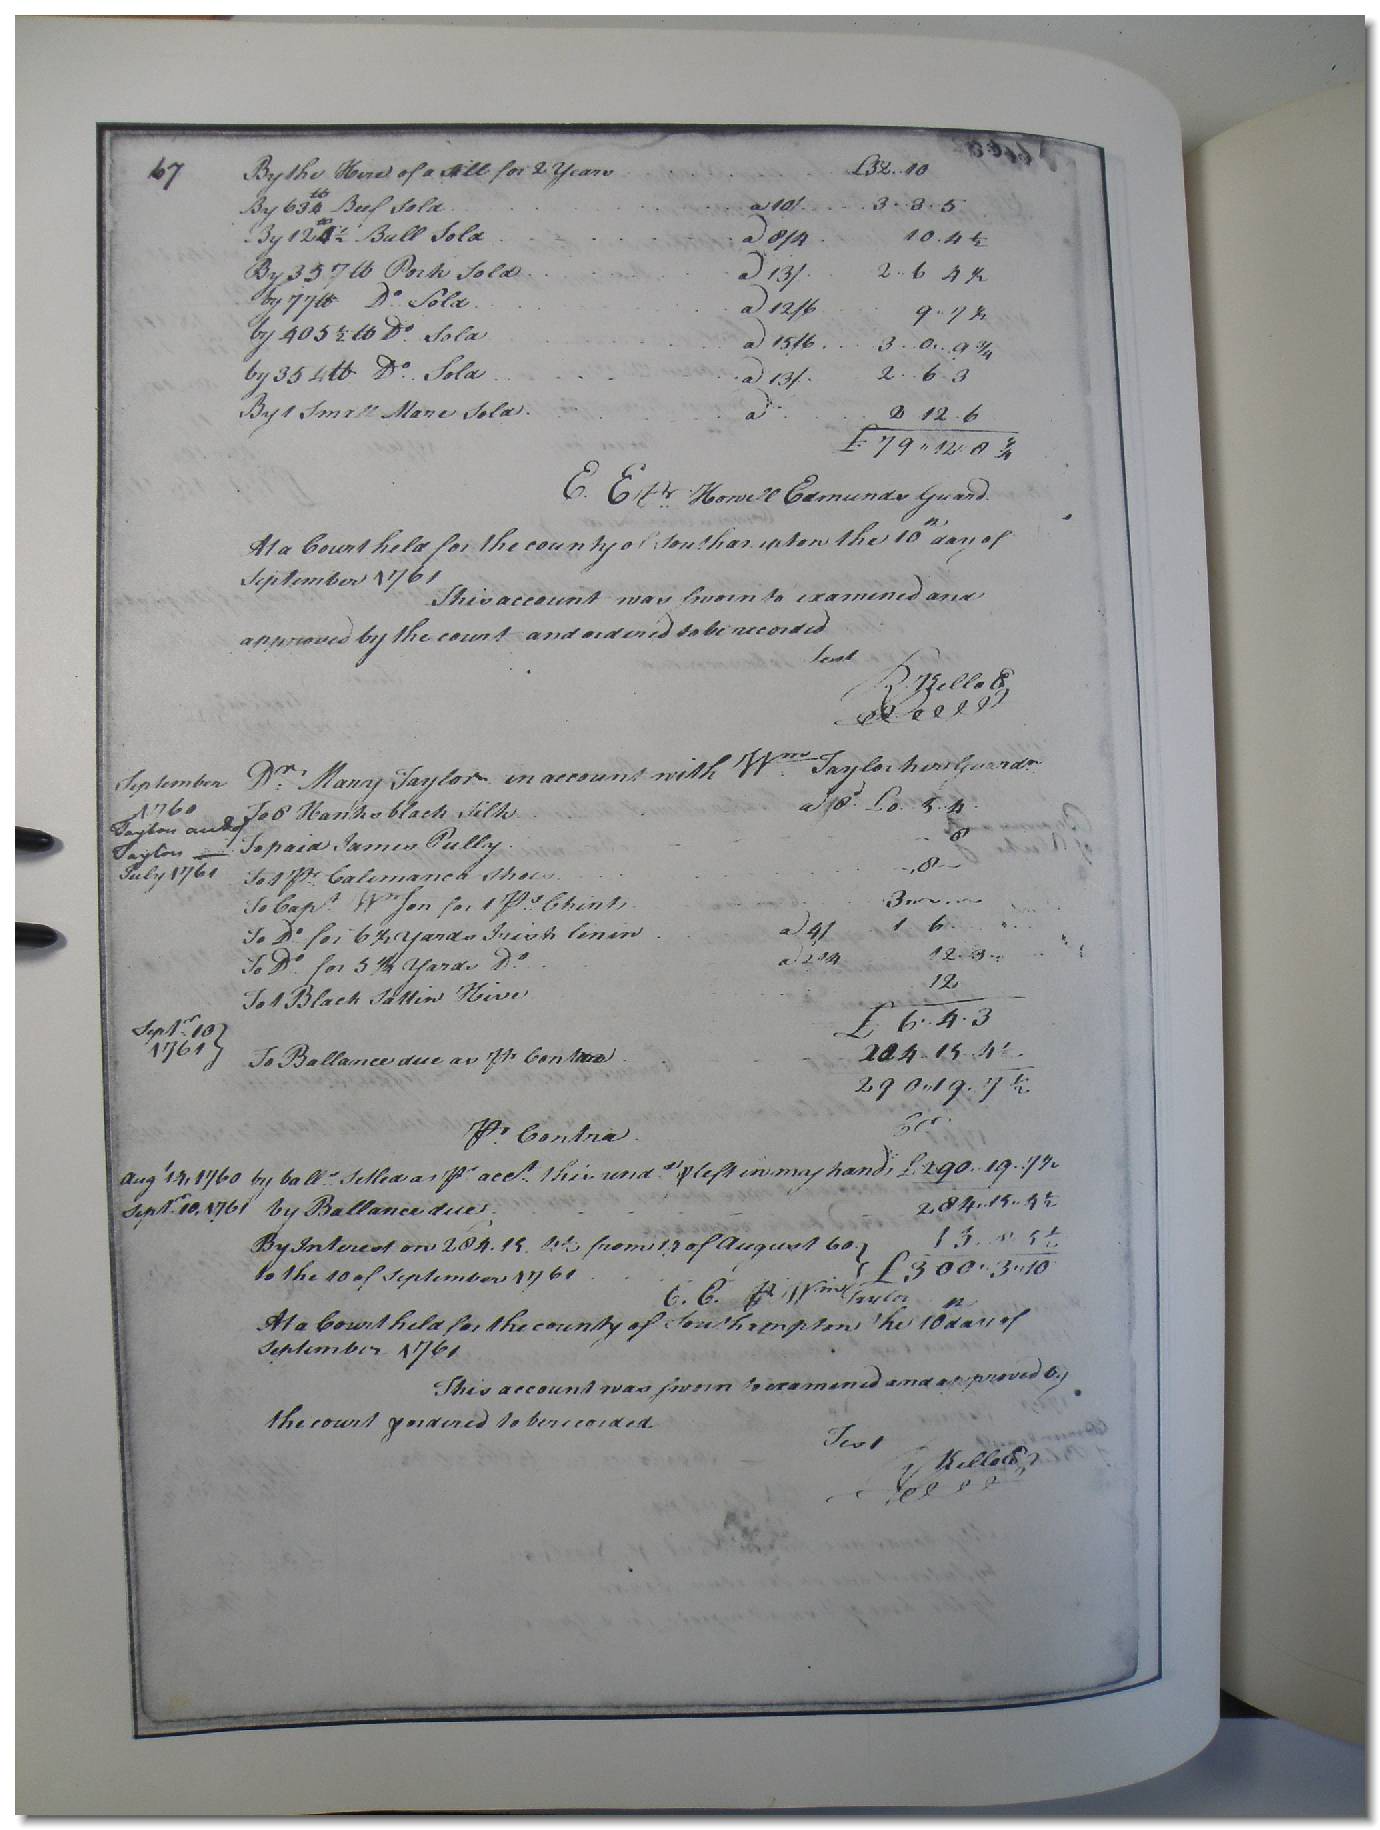 67
By the Hire of a Still for 2 Years £32..10
By 634 lb Beef Sold a 10/. 3..3..5
By 124 1/2 lb Bull Sold a 8/4 10..4 1/2
By 357 lb Pork Sold a 13/. 2..6 4 1/2
by 77 lb Do Sold a 12/6 9..7 1/2
by 405 1/2 lb Do Sold a 15/6 3..0..9 3/4
by 354 lb Do Sold a 13/. 2..6 3
By 1 Small Mare Sold a 2 12..6
£79..12..8 3/4
E. E. Howell Edmunds Guard.
At a Court held for the county of Southampton the 10th day of
September 1761
This account was sworn to examined and
approved by the court and ordered to be recorded
Test
R. Kello C
September 1760 Dr. Mary Taylor in account with Wm Taylor her Guardn
To 8 Hanks black Silk a /8d £0..5..4
Taylor and Taylor
To paid James Pully 8
July 1761 To 1 Pr. Calimanca Shoes ..8
To Capt. Wm for 1 Ps Chints 3
To Do for 6 1/2 Yards Irish linen a 4/ 1 6
To Do for 5 1/4 Yards Do a 2..4 12..3
To 1 Black Sattin Hive 12
£6..4..3
Septr. 10 1761 To Ballance due as Pr Contra 284..15..4 1/2
290..19..7 1/2
Pr Contra Cr
Augt 14, 1760 by ballce. Setled as Pr acct. this and left in my hands £290..19..7 1/2
Septr. 10, 1761 by Ballance due 284..15..4 1/2
By Interest on 284..15..4 1/2 from 14 of August 60 15..8..5 1/2
to the 10 of September 1761 £300..3..10
E. E. Pr Wm Taylor
At a Court held for the county of Southampton the 10th day of
September 1761
This account was sworn to examined and approved by
the court & ordered to be recorded
Test
R Kello C